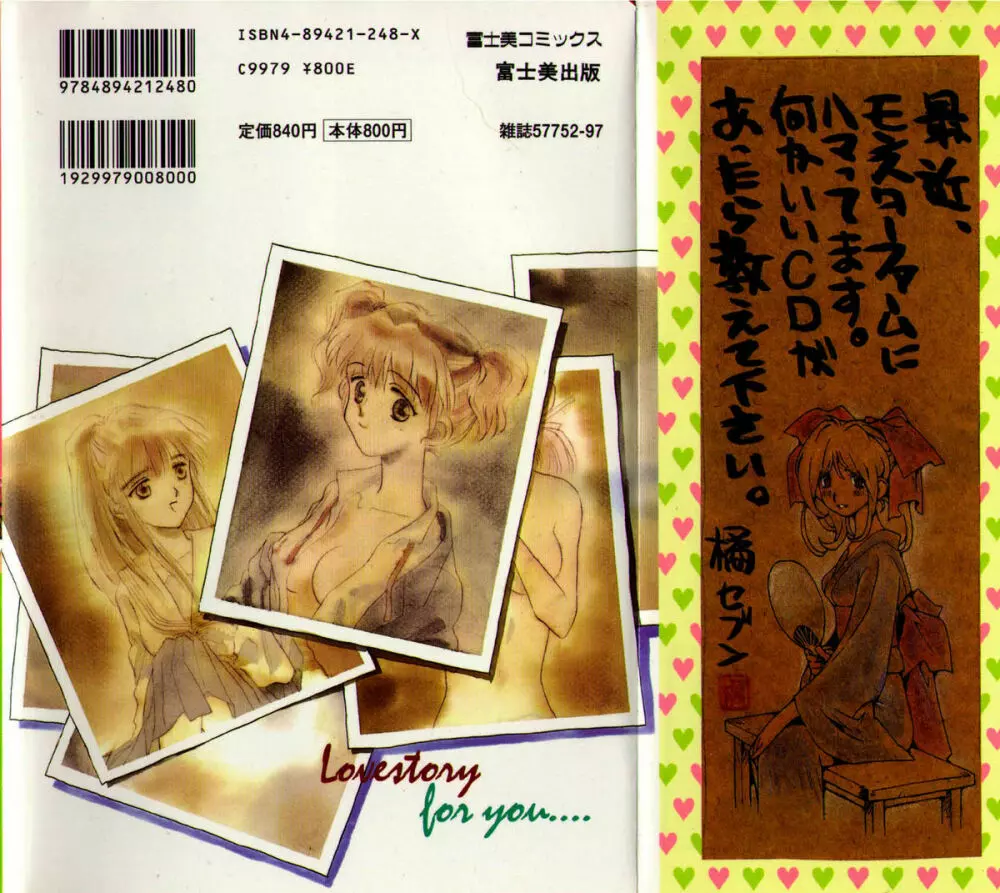 ISBN4-89421-248-X
C9979 ¥800E
富士美コミックス
富士美出版
9784894212480
定価840円 本体800円
雑誌57752-97
1929979008000
Lovestory
for you....
最近、
モンスターファームに
ハマってます。
何かいいCDが
あったら教えて下さい。
橘セブン